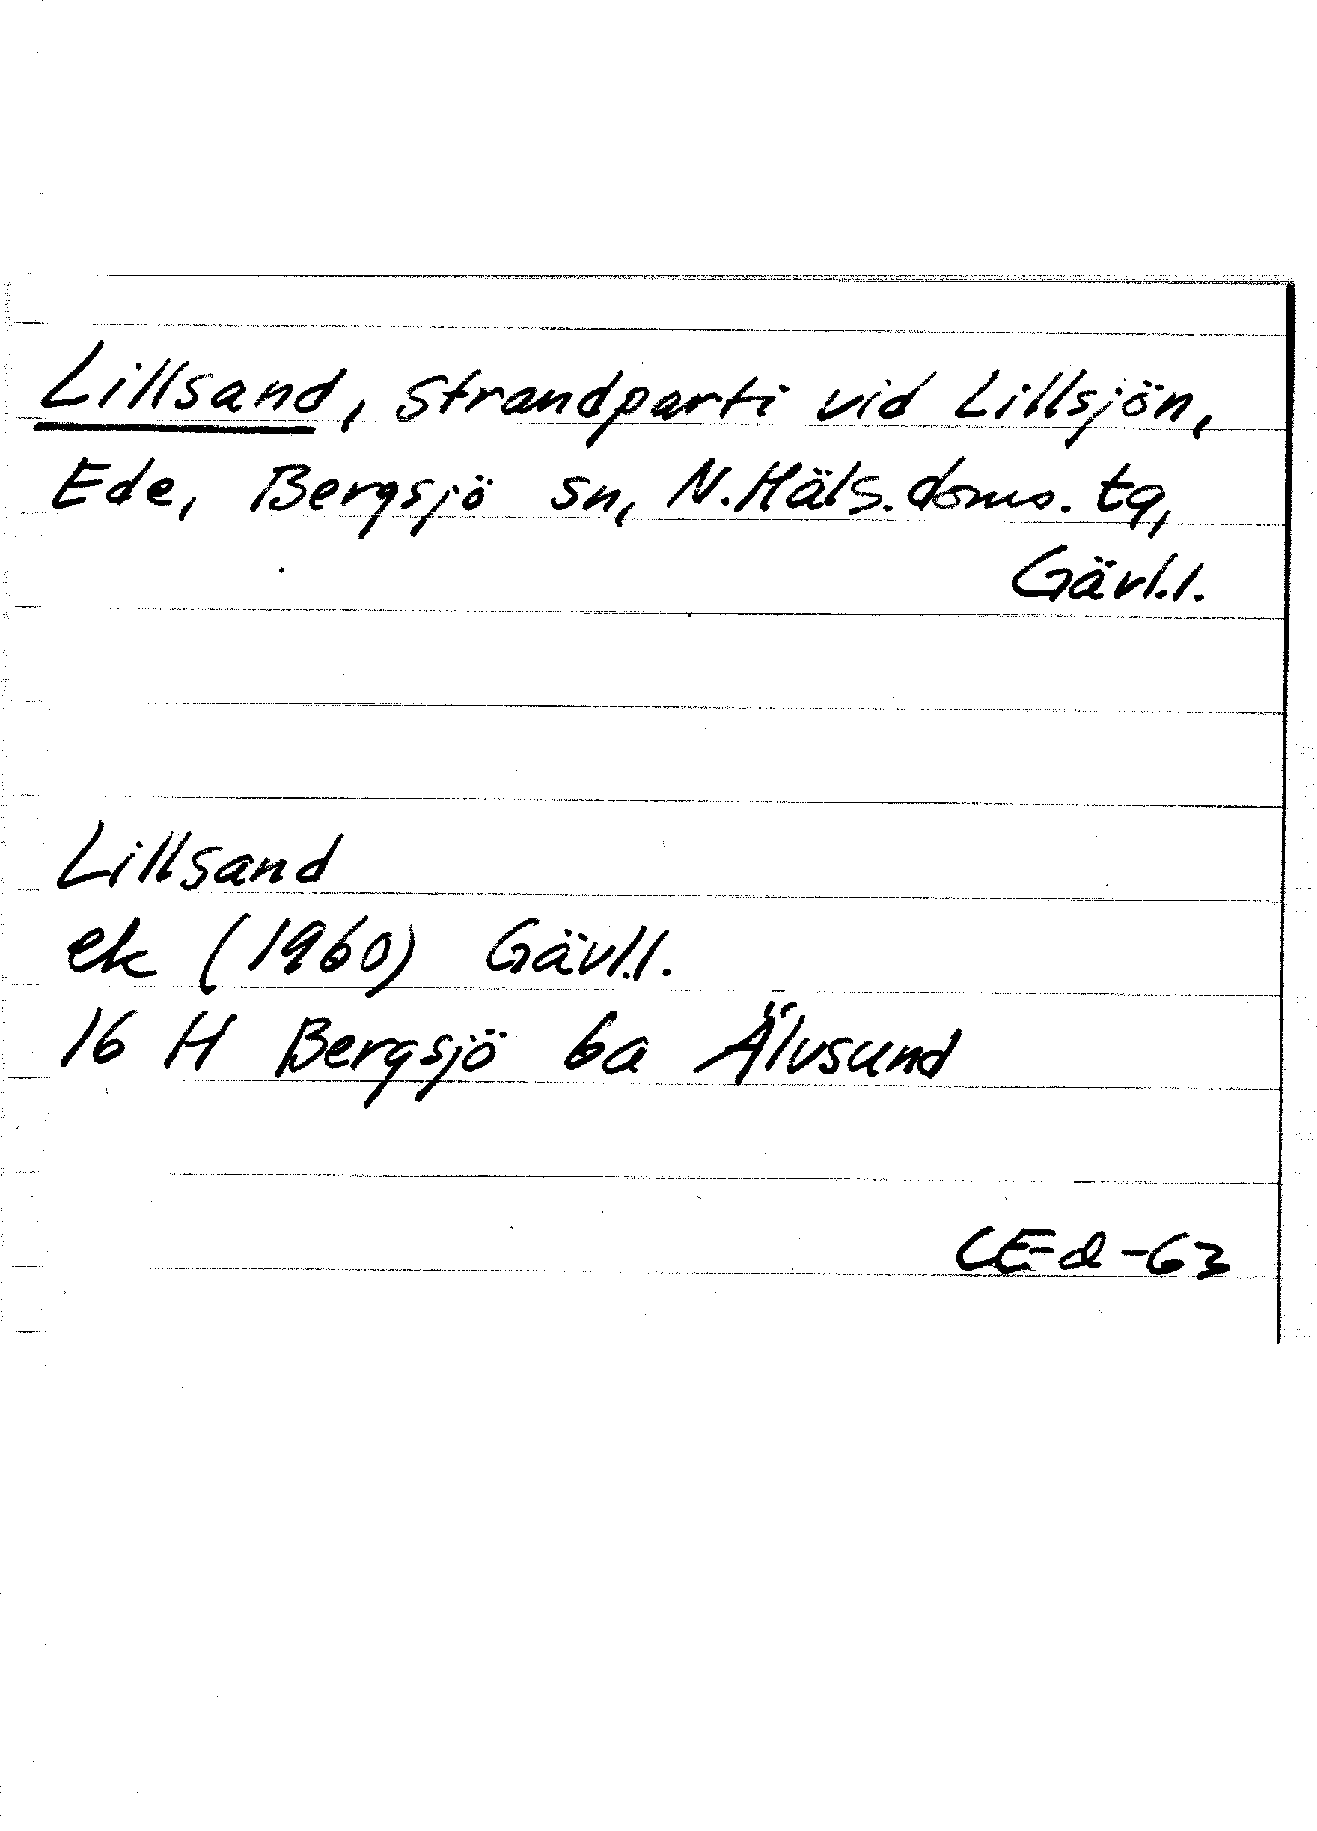 Lillsand, strandparti vid Lillsjön,
Ede, Bergsjö sn, N.Häls.doms.tg,
Gävl.l.
Lillsand
ek (1960) Gävl.l.
16 H Bergsjö 6a Älvsund
CEd-63